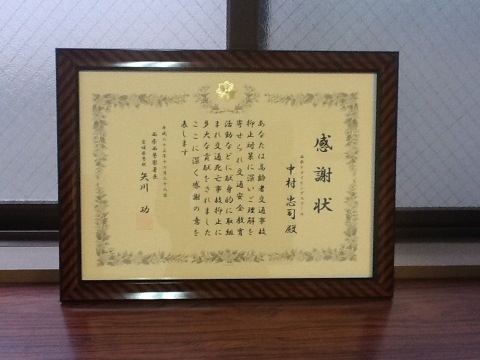 感謝状
中村忠司殿
あなたは高齢者交通事故
抑止対策に深いご理解を
寄せられ交通安全教育
活動などに献身的に取組
まれ交通死亡事故抑止に
多大な貢献をされました
ここに深く感謝の意を
表します
矢川 功